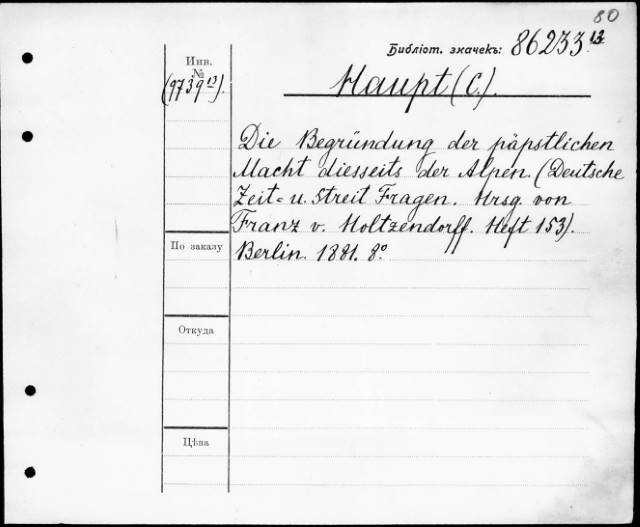 80
Библіот. значекъ: 86233.13
Инв.
№
(9739 13).
Haupt (C.).
Die Begründung der päpstlichen
Macht diesseits der Alpen. (Deutsche
Zeit= u. Streit Fragen. Hrsg. von
Franz v. Holtzendorff. Heft 153).
Berlin. 1881. 8°
По заказу
Откуда
Цѣна